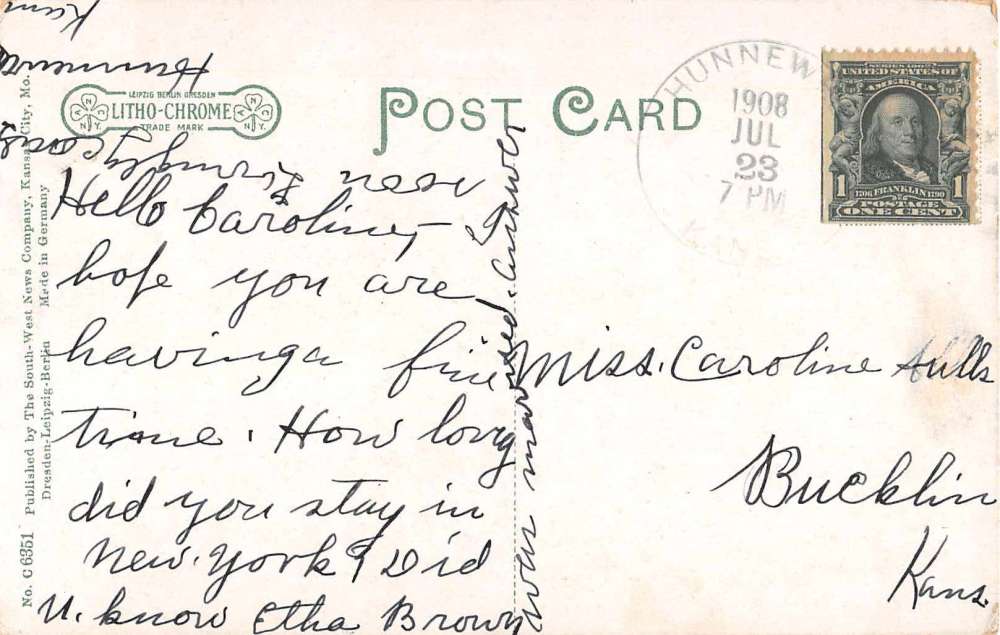 POST CARD
LEIPZIG BERLIN DRESDEN
LITHO-CHROME
TRADE MARK
HUNNEW
1908
JUL
23
7 PM
KAN
SERIES 1902
UNITED STATES OF
AMERICA
1 FRANKLIN 1
1706 1790
POSTAGE
ONE CENT
Hello Caroline,-
hope you are
having a fine
time. How long
did you stay in
New. York? Did
U. know Etha Brown
was married. Answer
soon Lovingly
Hunnewell
Kans
Miss. Caroline Hulls
Bucklin
Kans.
No. C 6351 Published by The South-West News Company, Kansas City, Mo.
Dresden-Leipzig-Berlin Made in Germany